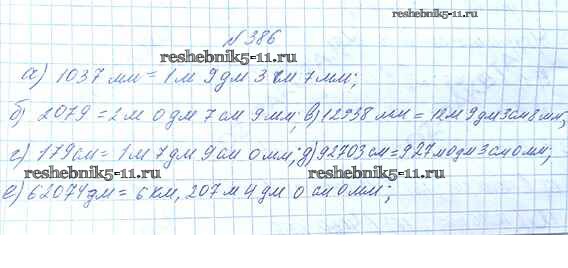 reshebnik5-11.ru
№ 386
reshebnik5-11.ru
а) 1037 мм = 1 м 9 дм 3 см 7 мм;
б) 2079 = 2 м 0 дм 7 см 9 мм; в) 12938 мм = 12 м 9 дм 3 см 8 мм;
reshebnik5-11.ru
г) 179 см = 1 м 7 дм 9 см 0 мм; д) 92703 см = 927 м 0 дм 3 см 0 мм;
reshebnik5-11.ru reshebnik5-11.ru
е) 62074 дм = 6 км, 207 м 4 дм 0 см 0 мм;
reshebnik5-11.ru